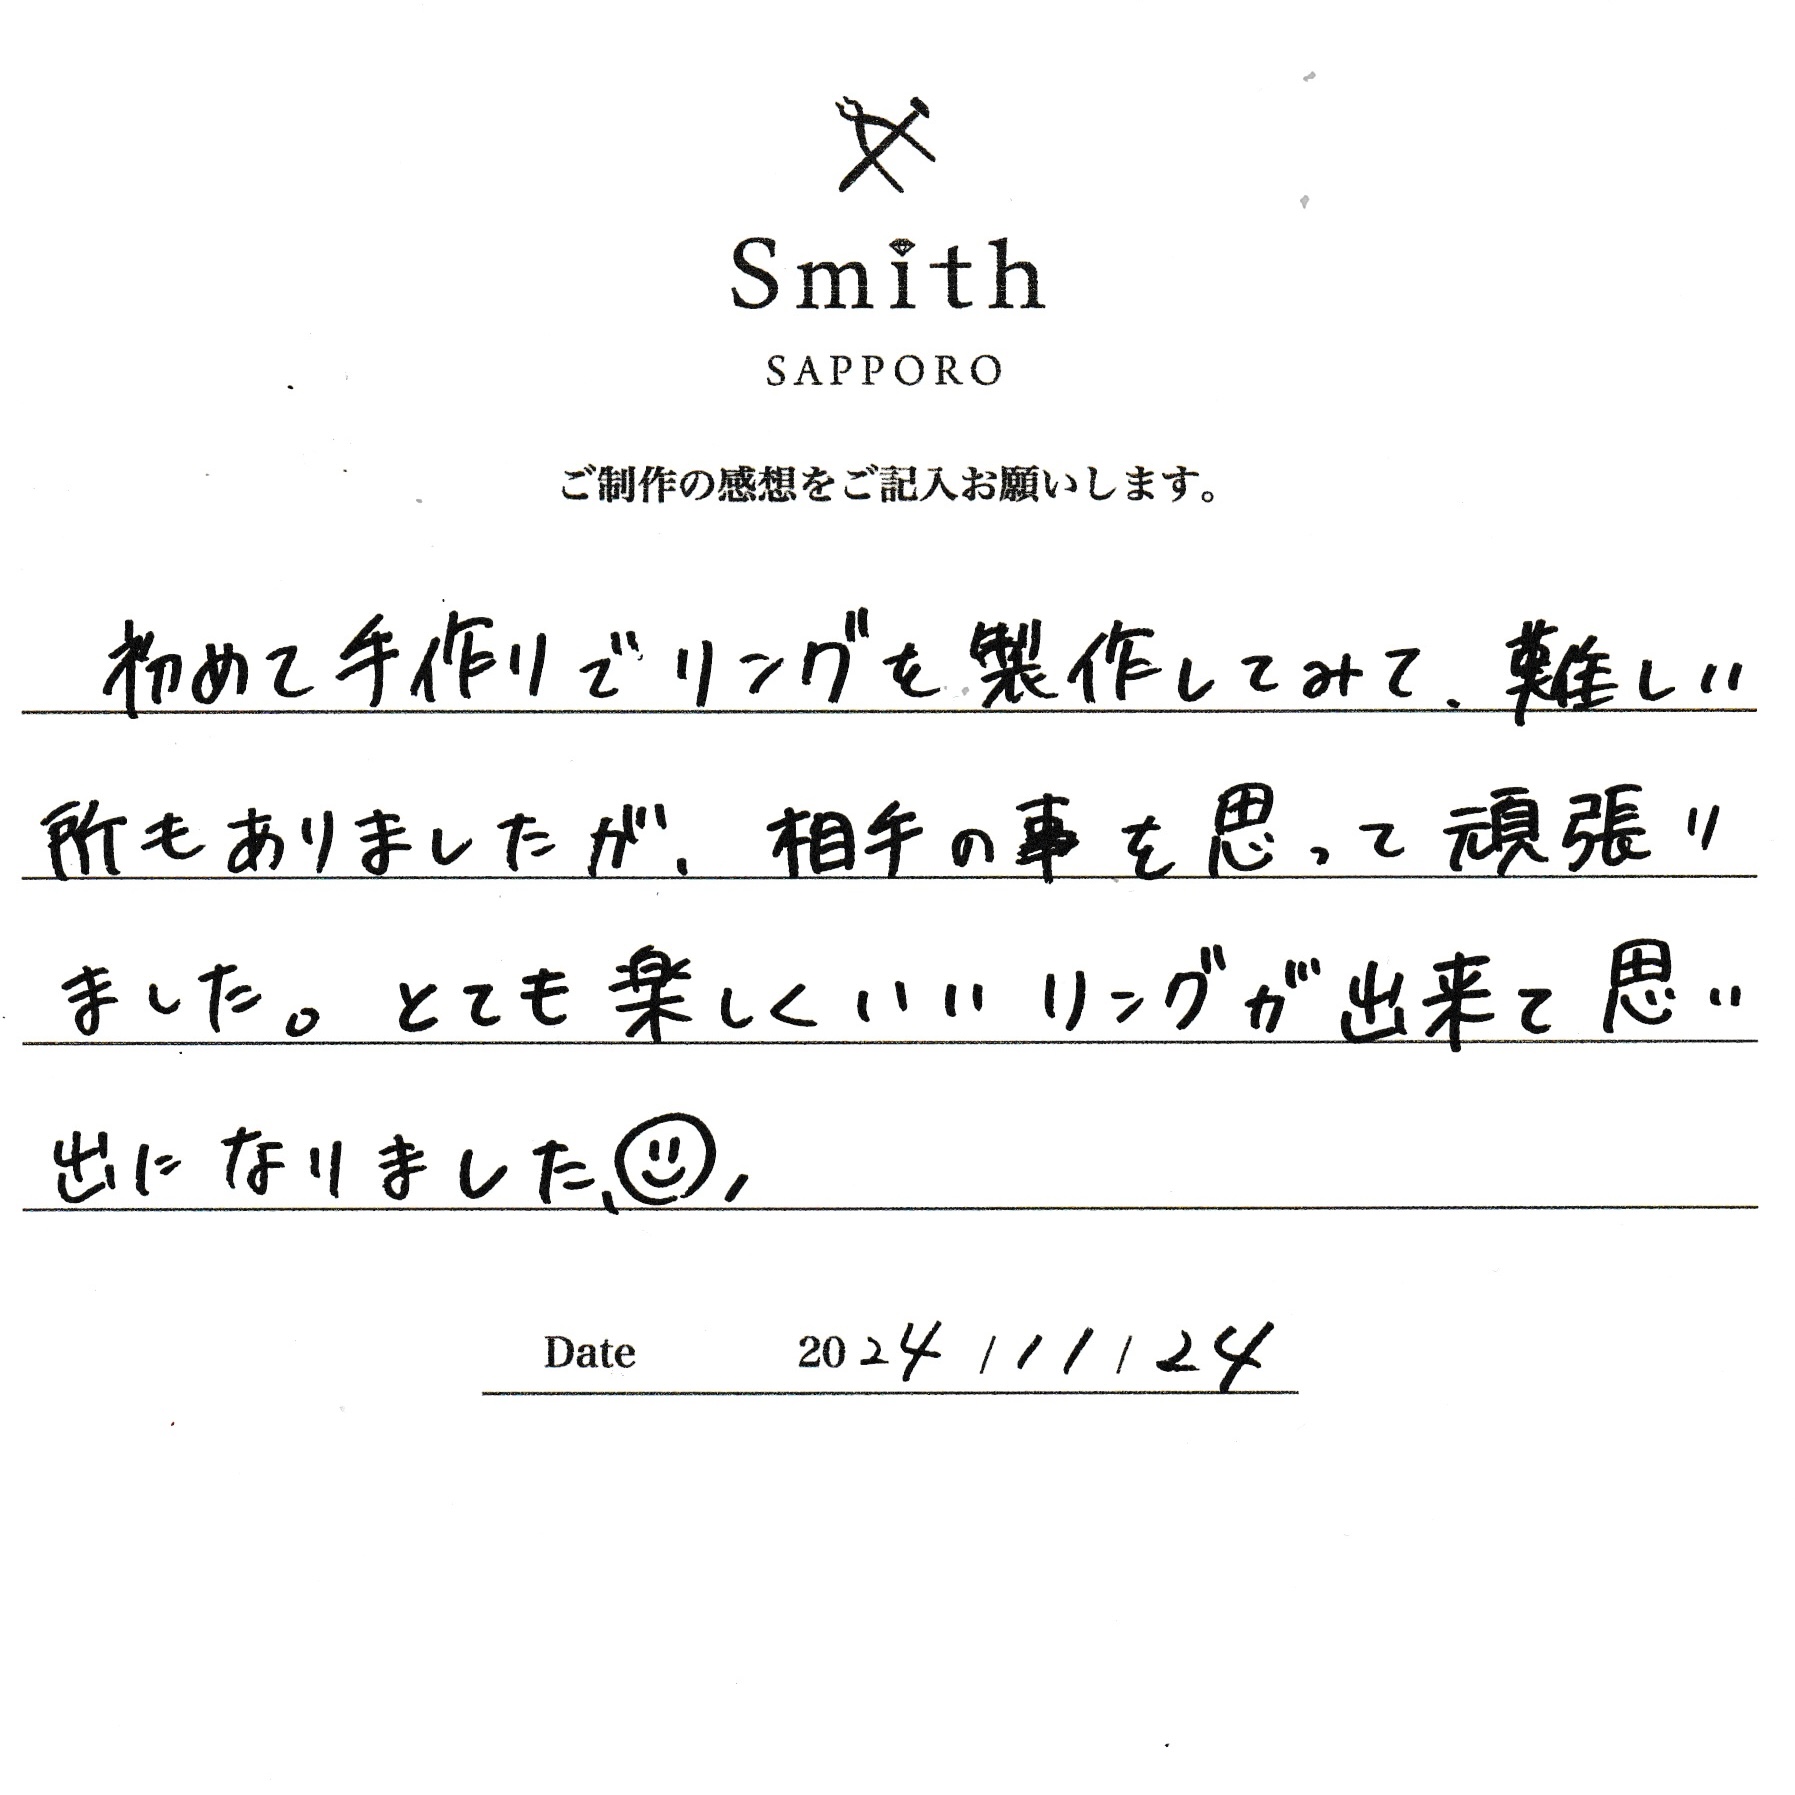 Smith
SAPPORO
ご制作の感想をご記入お願いします。
初めて手作りでリングを製作してみて、難しい
所もありましたが、相手の事を思って頑張り
ました。とても楽しくいいリングが出来て思い
出になりました、
Date 2024/11/24